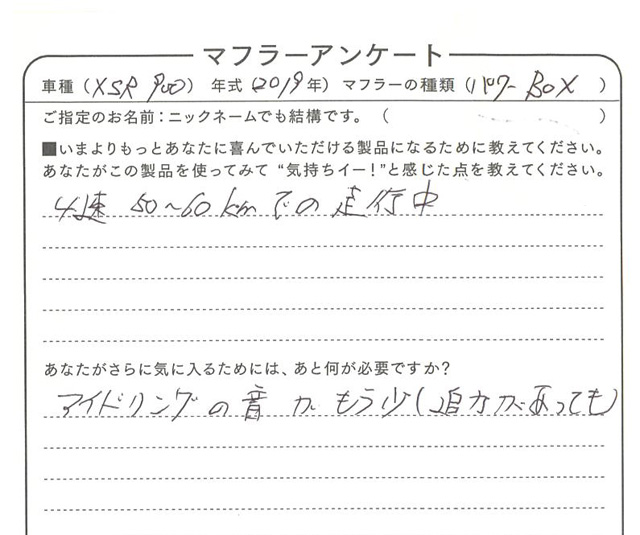 マフラーアンケート
車種（XSR 900） 年式（2019年） マフラーの種類（パワーBOX ）
ご指定のお名前：ニックネームでも結構です。（ ）
■いまよりもっとあなたに喜んでいただける製品になるために教えてください。
あなたがこの製品を使ってみて“気持ちイー！”と感じた点を教えてください。
4速 50〜60kmでの走行中
あなたがさらに気に入るためには、あと何が必要ですか？
アイドリングの音が もう少し迫力があっても